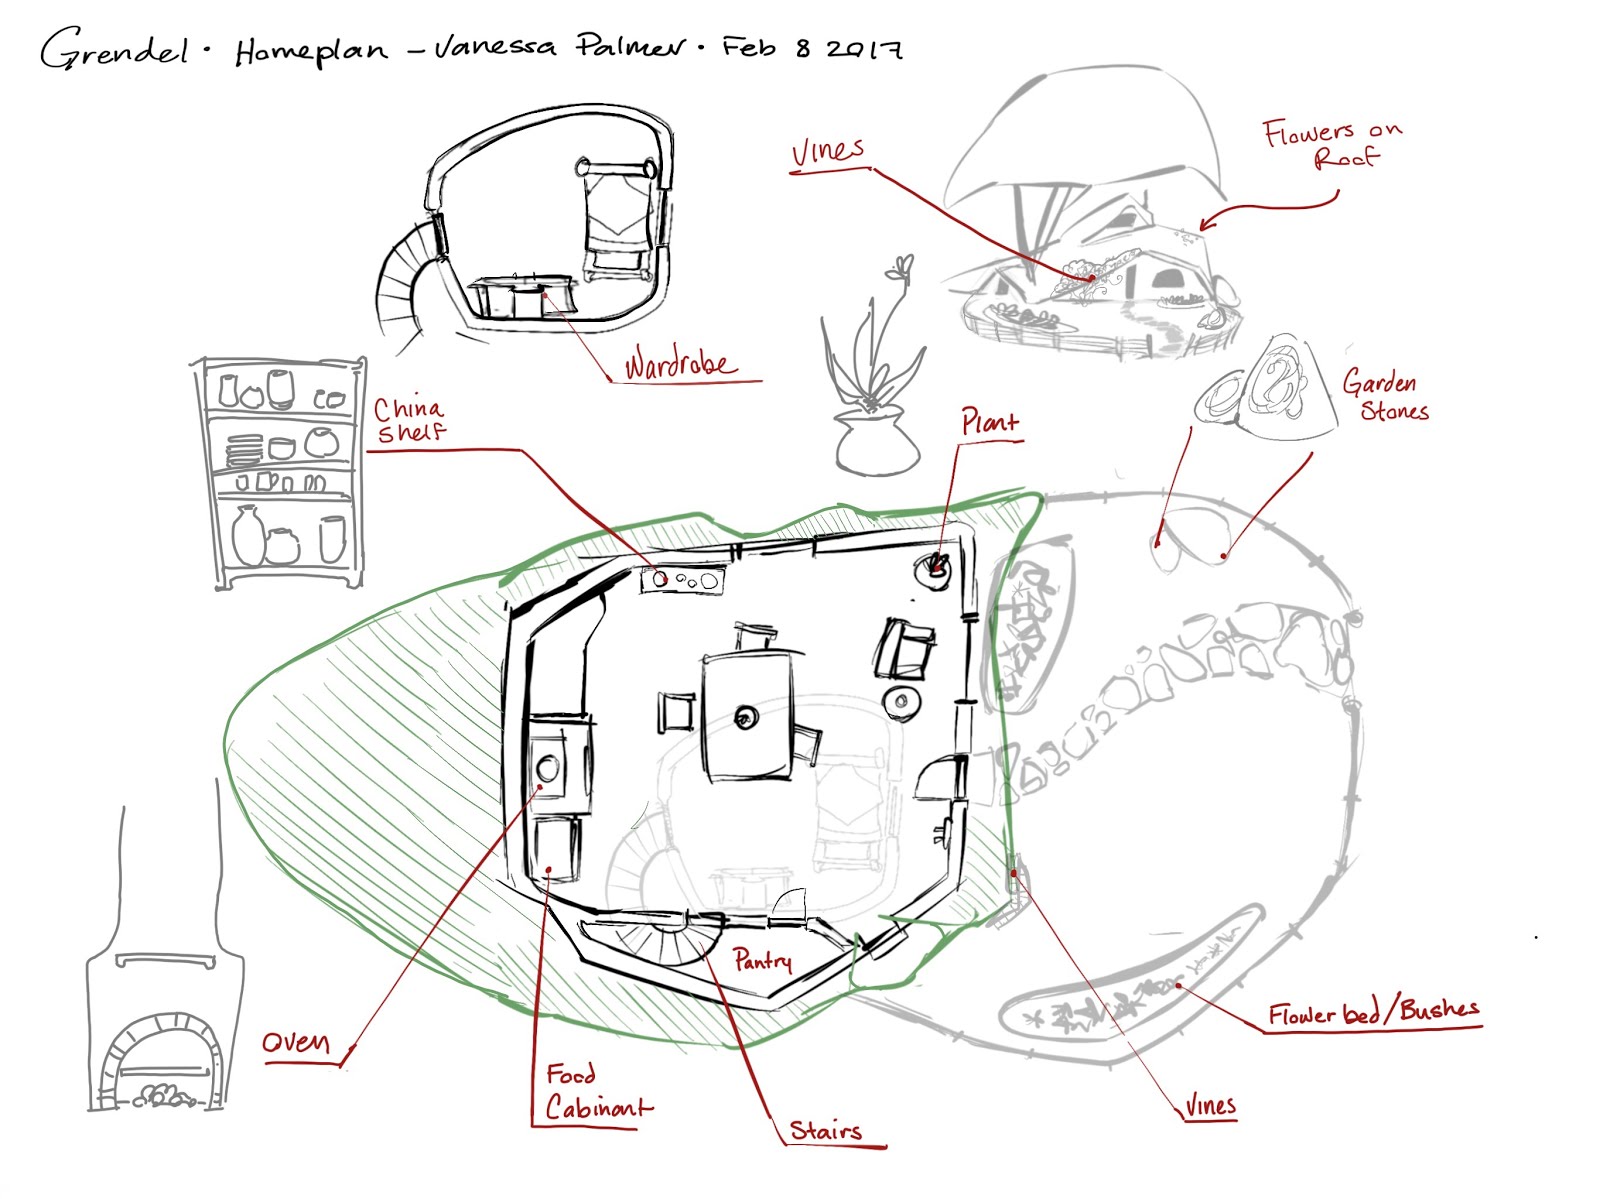 Grendel · Homeplan – Vanessa Palmer · Feb 8 2017
Vines
Flowers on
Roof
Wardrobe
China
Shelf
Plant
Garden
Stones
Pantry
Oven
Food
Cabinant
Stairs
Flower bed/Bushes
Vines